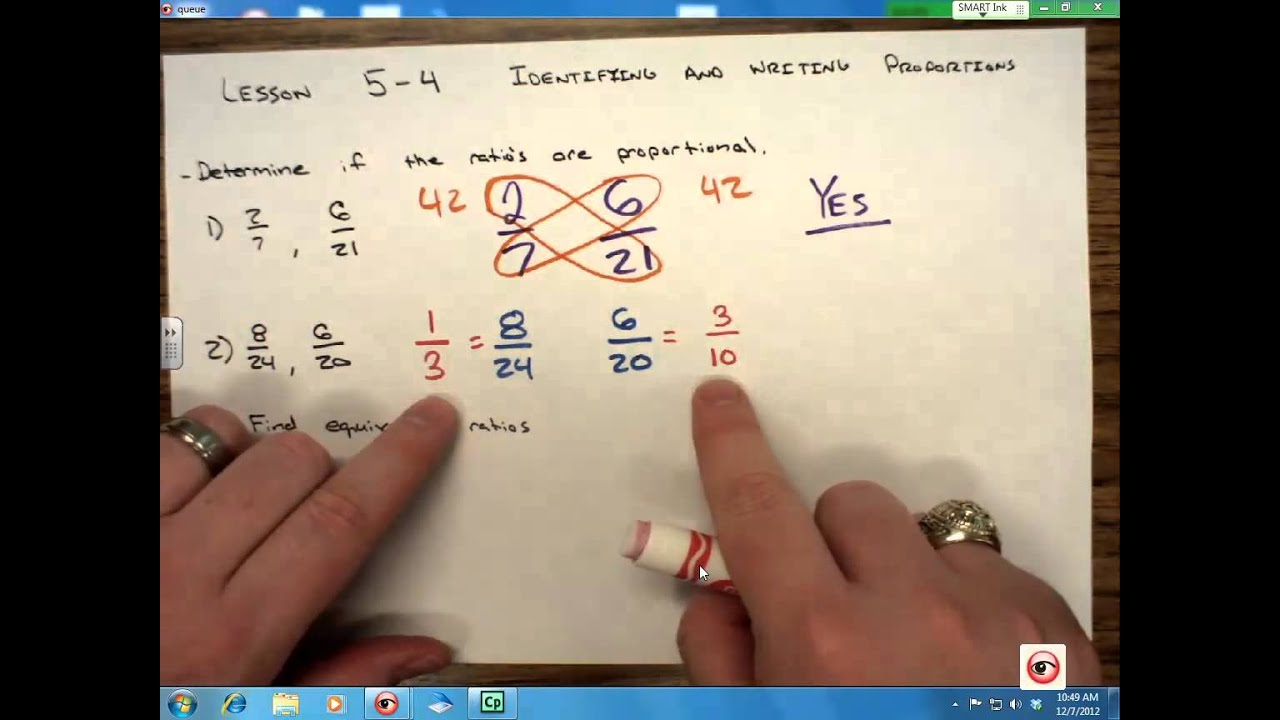 queue
SMART Ink
LESSON 5-4 IDENTIFYING AND WRITING PROPORTIONS
- Determine if the ratio's are proportional.
1) 2/7 , 6/21 42 2/7 6/21 42 YES
2) 8/24 , 6/20 1/3 = 8/24 6/20 = 3/10
Find ratios
Cp
10:49 AM
12/7/2012